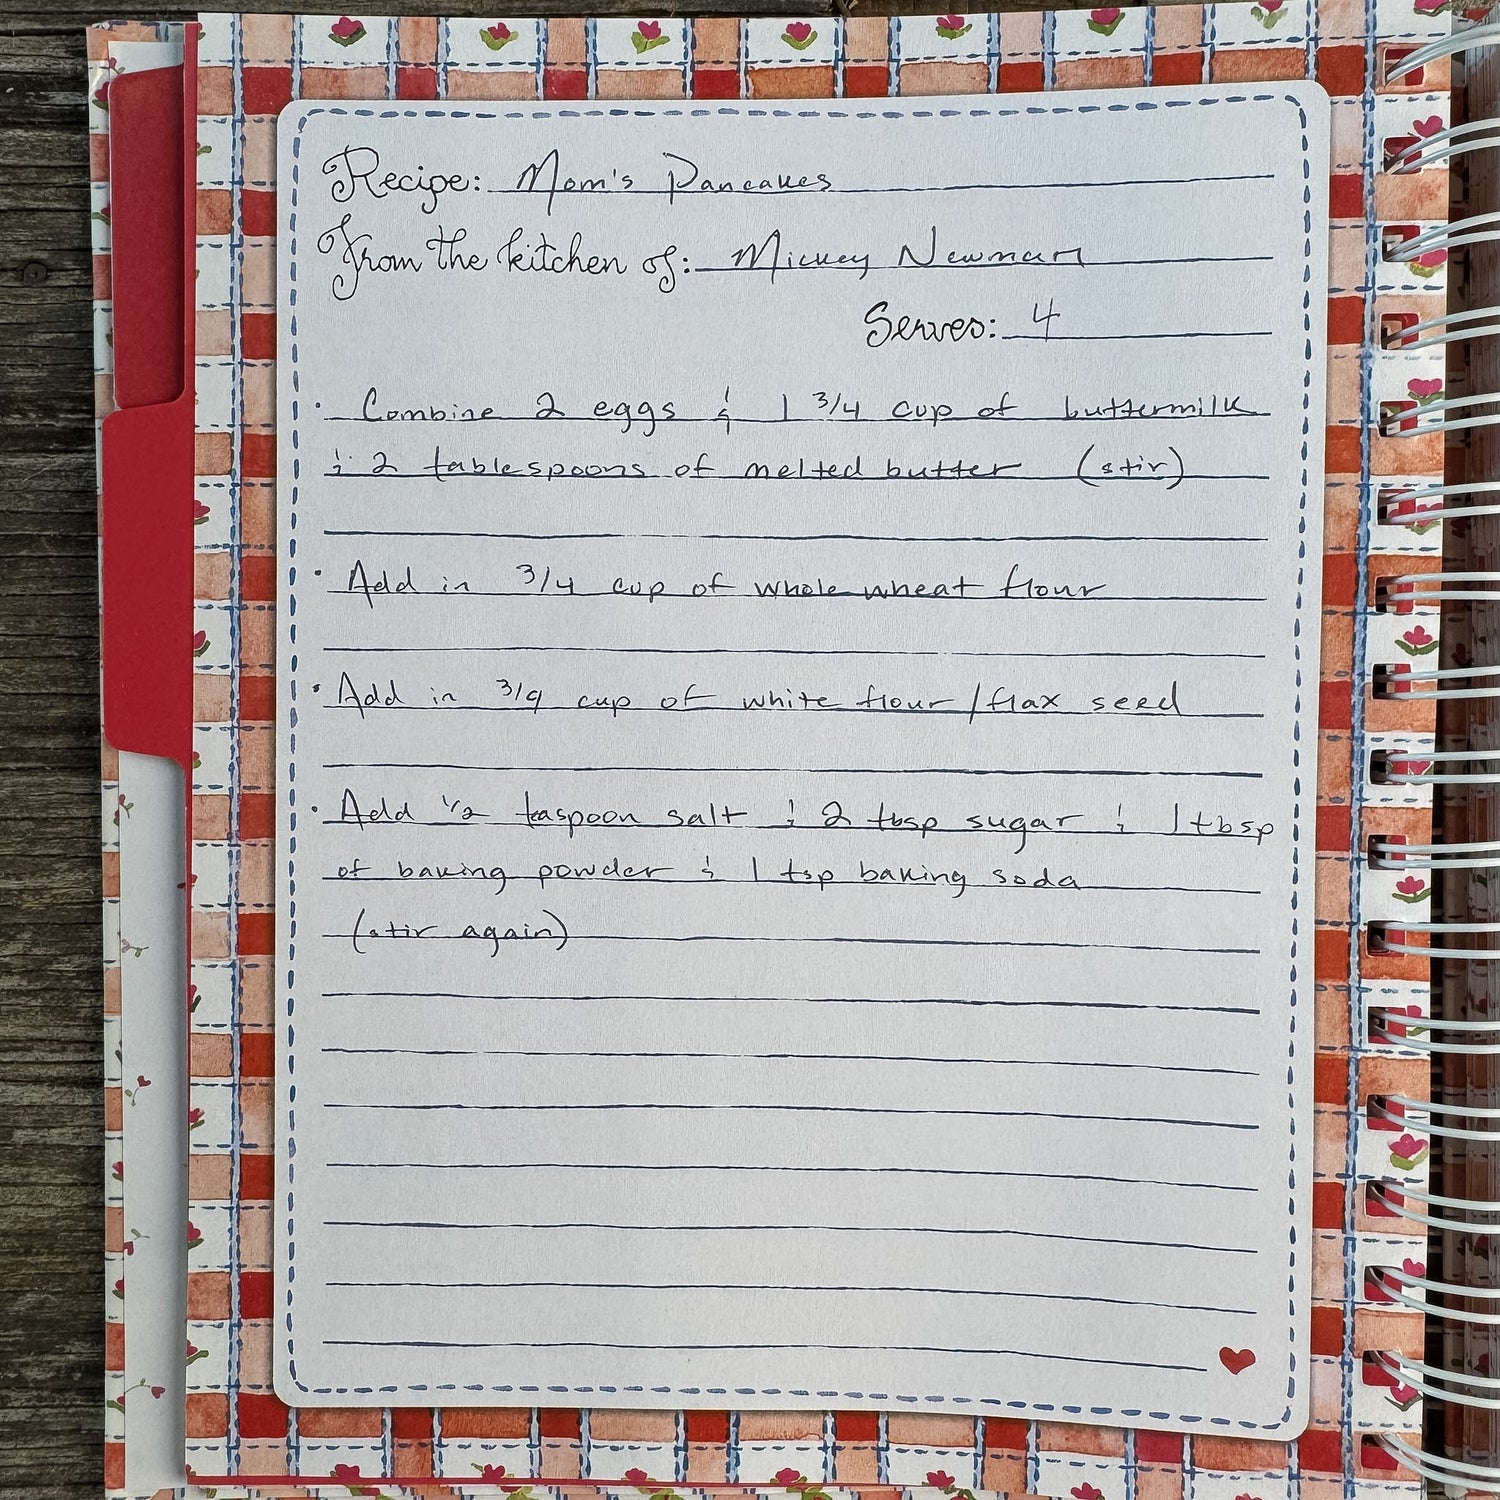 Recipe: Mom's Pancakes
From the kitchen of: Mickey Newman
Serves: 4
· Combine 2 eggs & 1 3/4 cup of buttermilk
& 2 tablespoons of melted butter (stir)
· Add in 3/4 cup of whole wheat flour
· Add in 3/4 cup of white flour/flax seed
· Add 1/2 teaspoon salt & 2 tbsp sugar & 1 tbsp
of baking powder & 1 tsp baking soda
(stir again)